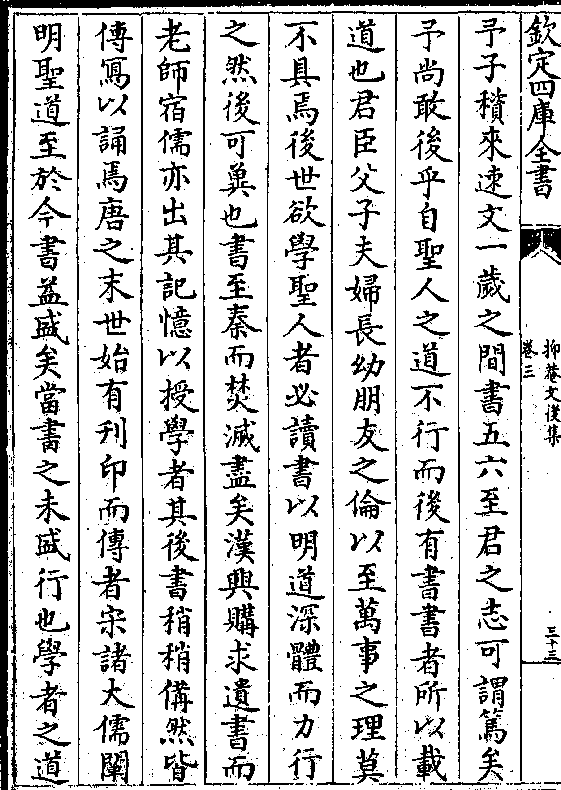 欽定四庫全書
抑菴文後集
卷三
三十三
予子稹來速文一歲之間書五六至君之志可謂篤矣
予尚敢後乎自聖人之道不行而後有書書者所以載
道也君臣父子夫婦長幼朋友之倫以至萬事之理莫
不具焉後世欲學聖人者必讀書以明道深體而力行
之然後可兾也書至秦而焚滅盡矣漢興購求遺書而
老師宿儒亦出其記憶以授學者其後書稍稍僃然皆
傳寫以誦焉唐之末世始有刋印而傳者宋諸大儒闡
明聖道至於今書益盛矣當書之未盛行也學者之道